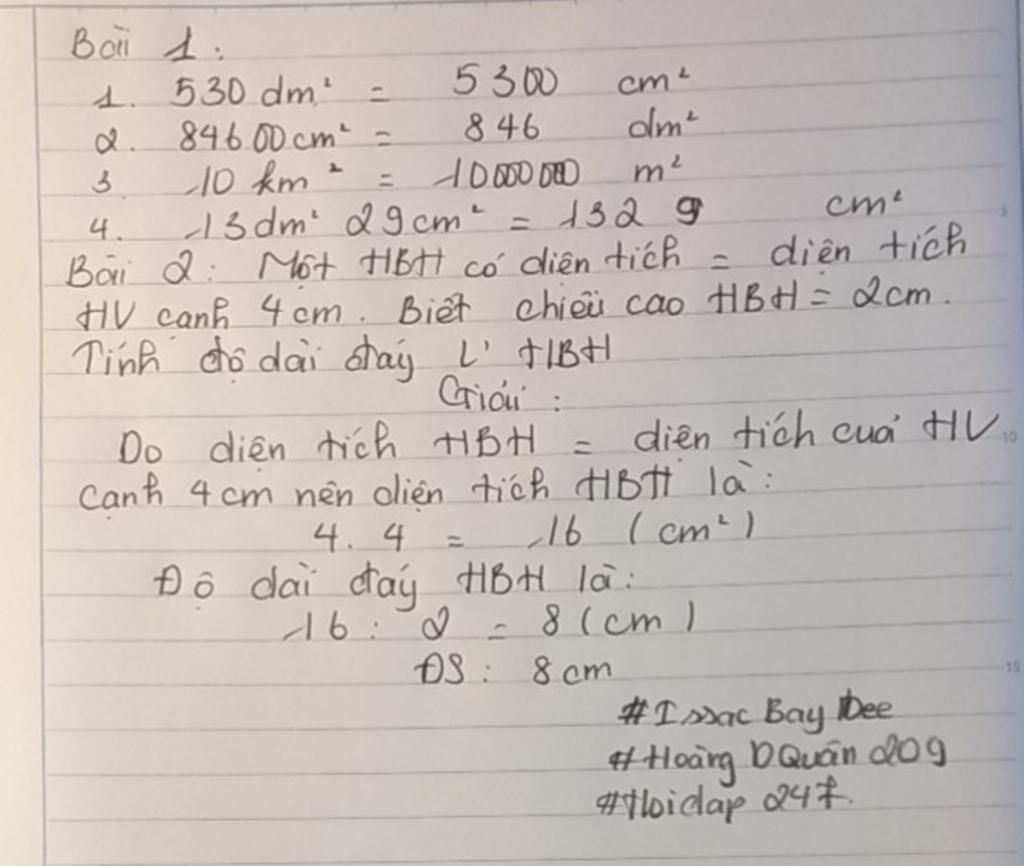 Bài 1:
1. 530 dm² = 5300 cm²
2. 84600 cm² = 846 dm²
3 10 km² = 10000000 m²
4. 13dm² 29cm² = 1329 cm²
Bài 2: Một HBH có diện tích = diện tích
HV cạnh 4cm. Biết chiều cao HBH = 2cm.
Tính độ dài đáy L' HBH
Giải:
Do diện tích HBH = diện tích của HV
cạnh 4cm nên diện tích HBH là:
4. 4 = 16 (cm²)
Độ dài đáy HBH là:
16: 2 = 8 (cm)
ĐS: 8cm
#Issac Bay Dee
#Hoàng DQuân 209
#Hoidap 247.